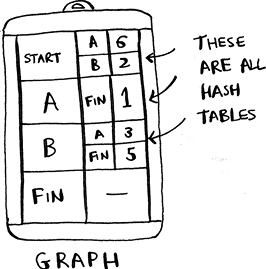 START A 6
B 2
A FIN 1
B A 3
FIN 5
FIN —
THESE
ARE ALL
HASH
TABLES
GRAPH